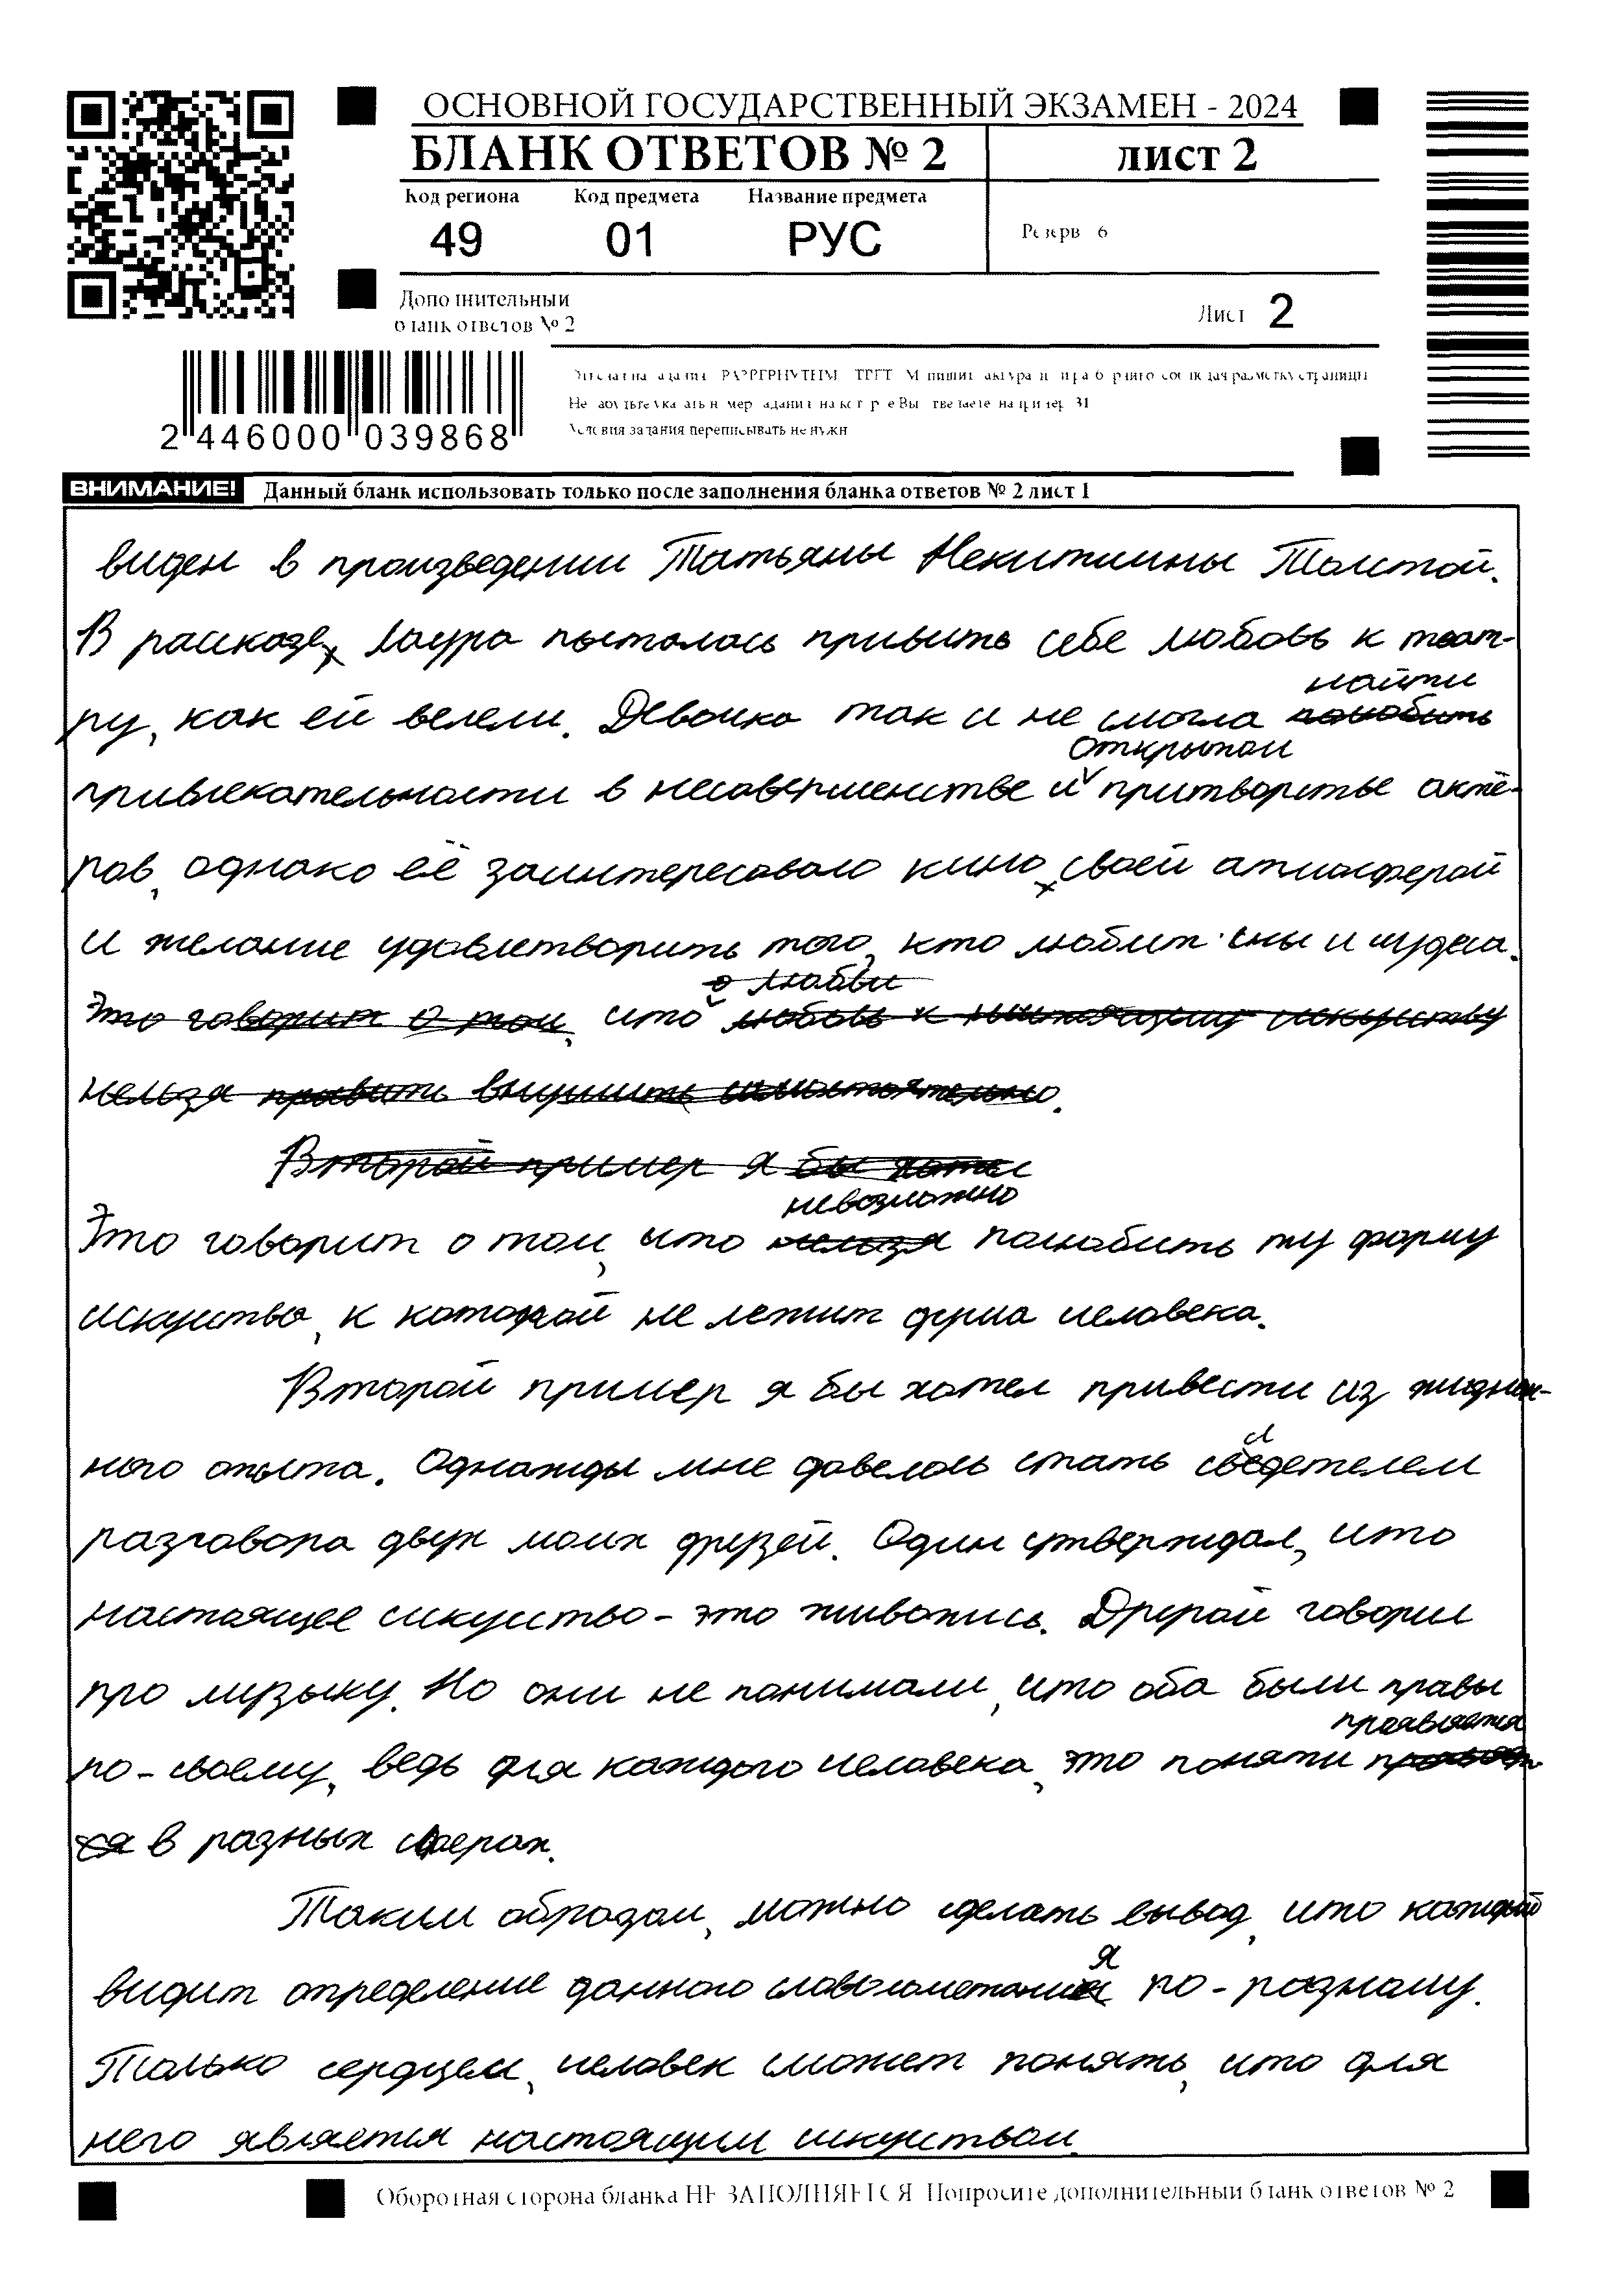 ОСНОВНОЙ ГОСУДАРСТВЕННЫЙ ЭКЗАМЕН - 2024
БЛАНК ОТВЕТОВ № 2 лист 2
Код региона Код предмета Название предмета
49 01 РУС
Резерв 6
Дополнительный
бланк ответов № 2
Лист 2
Условия задания переписывать не нужн
2 446000 039868
ВНИМАНИЕ! Данный бланк использовать только после заполнения бланка ответов № 2 лист 1
виден в произведении Татьяны Некитишны Толстой.
В рассказе, Лаура пыталась привить себе любовь к теат-
найти
ру, как ей велели. Девочка так и не смогла полюбить
открытой
привлекательности в несовершенстве и притворстве актё-
ров, однако её заинтересовало кино, своей атмосферой
и желание удовлетворить того, кто любит сны и чудеса.
о любви
Это говорит о том, что любовь к настоящему искусству
нельзя привить внушить самостоятельно.
Второй пример я бы хотел
невозможно
Это говорит о том, что нельзя полюбить ту форму
искусства, к которой не лежит душа человека.
Второй пример я бы хотел привести из жизнен-
и
ного опыта. Однажды мне довелось стать сведетелем
разговора двух моих друзей. Один утверждал, что
настоящее сискуство - это живопись. Другой говорил
про музыку. Но они не понимали, что оба были правы
проявляется
по-своему, ведь для каждого человека, это поняти
ся в разных сферах.
Таким образом, можно сделать вывод, что каждый
я
видит определение данного словосочетания по-разному.
Только сердцем, человек сможет понять, что для
него является настоящим искуством.
Оборотная сторона бланка НЕ ЗАПОЛНЯЕТСЯ. Попросите дополнительный бланк ответов № 2